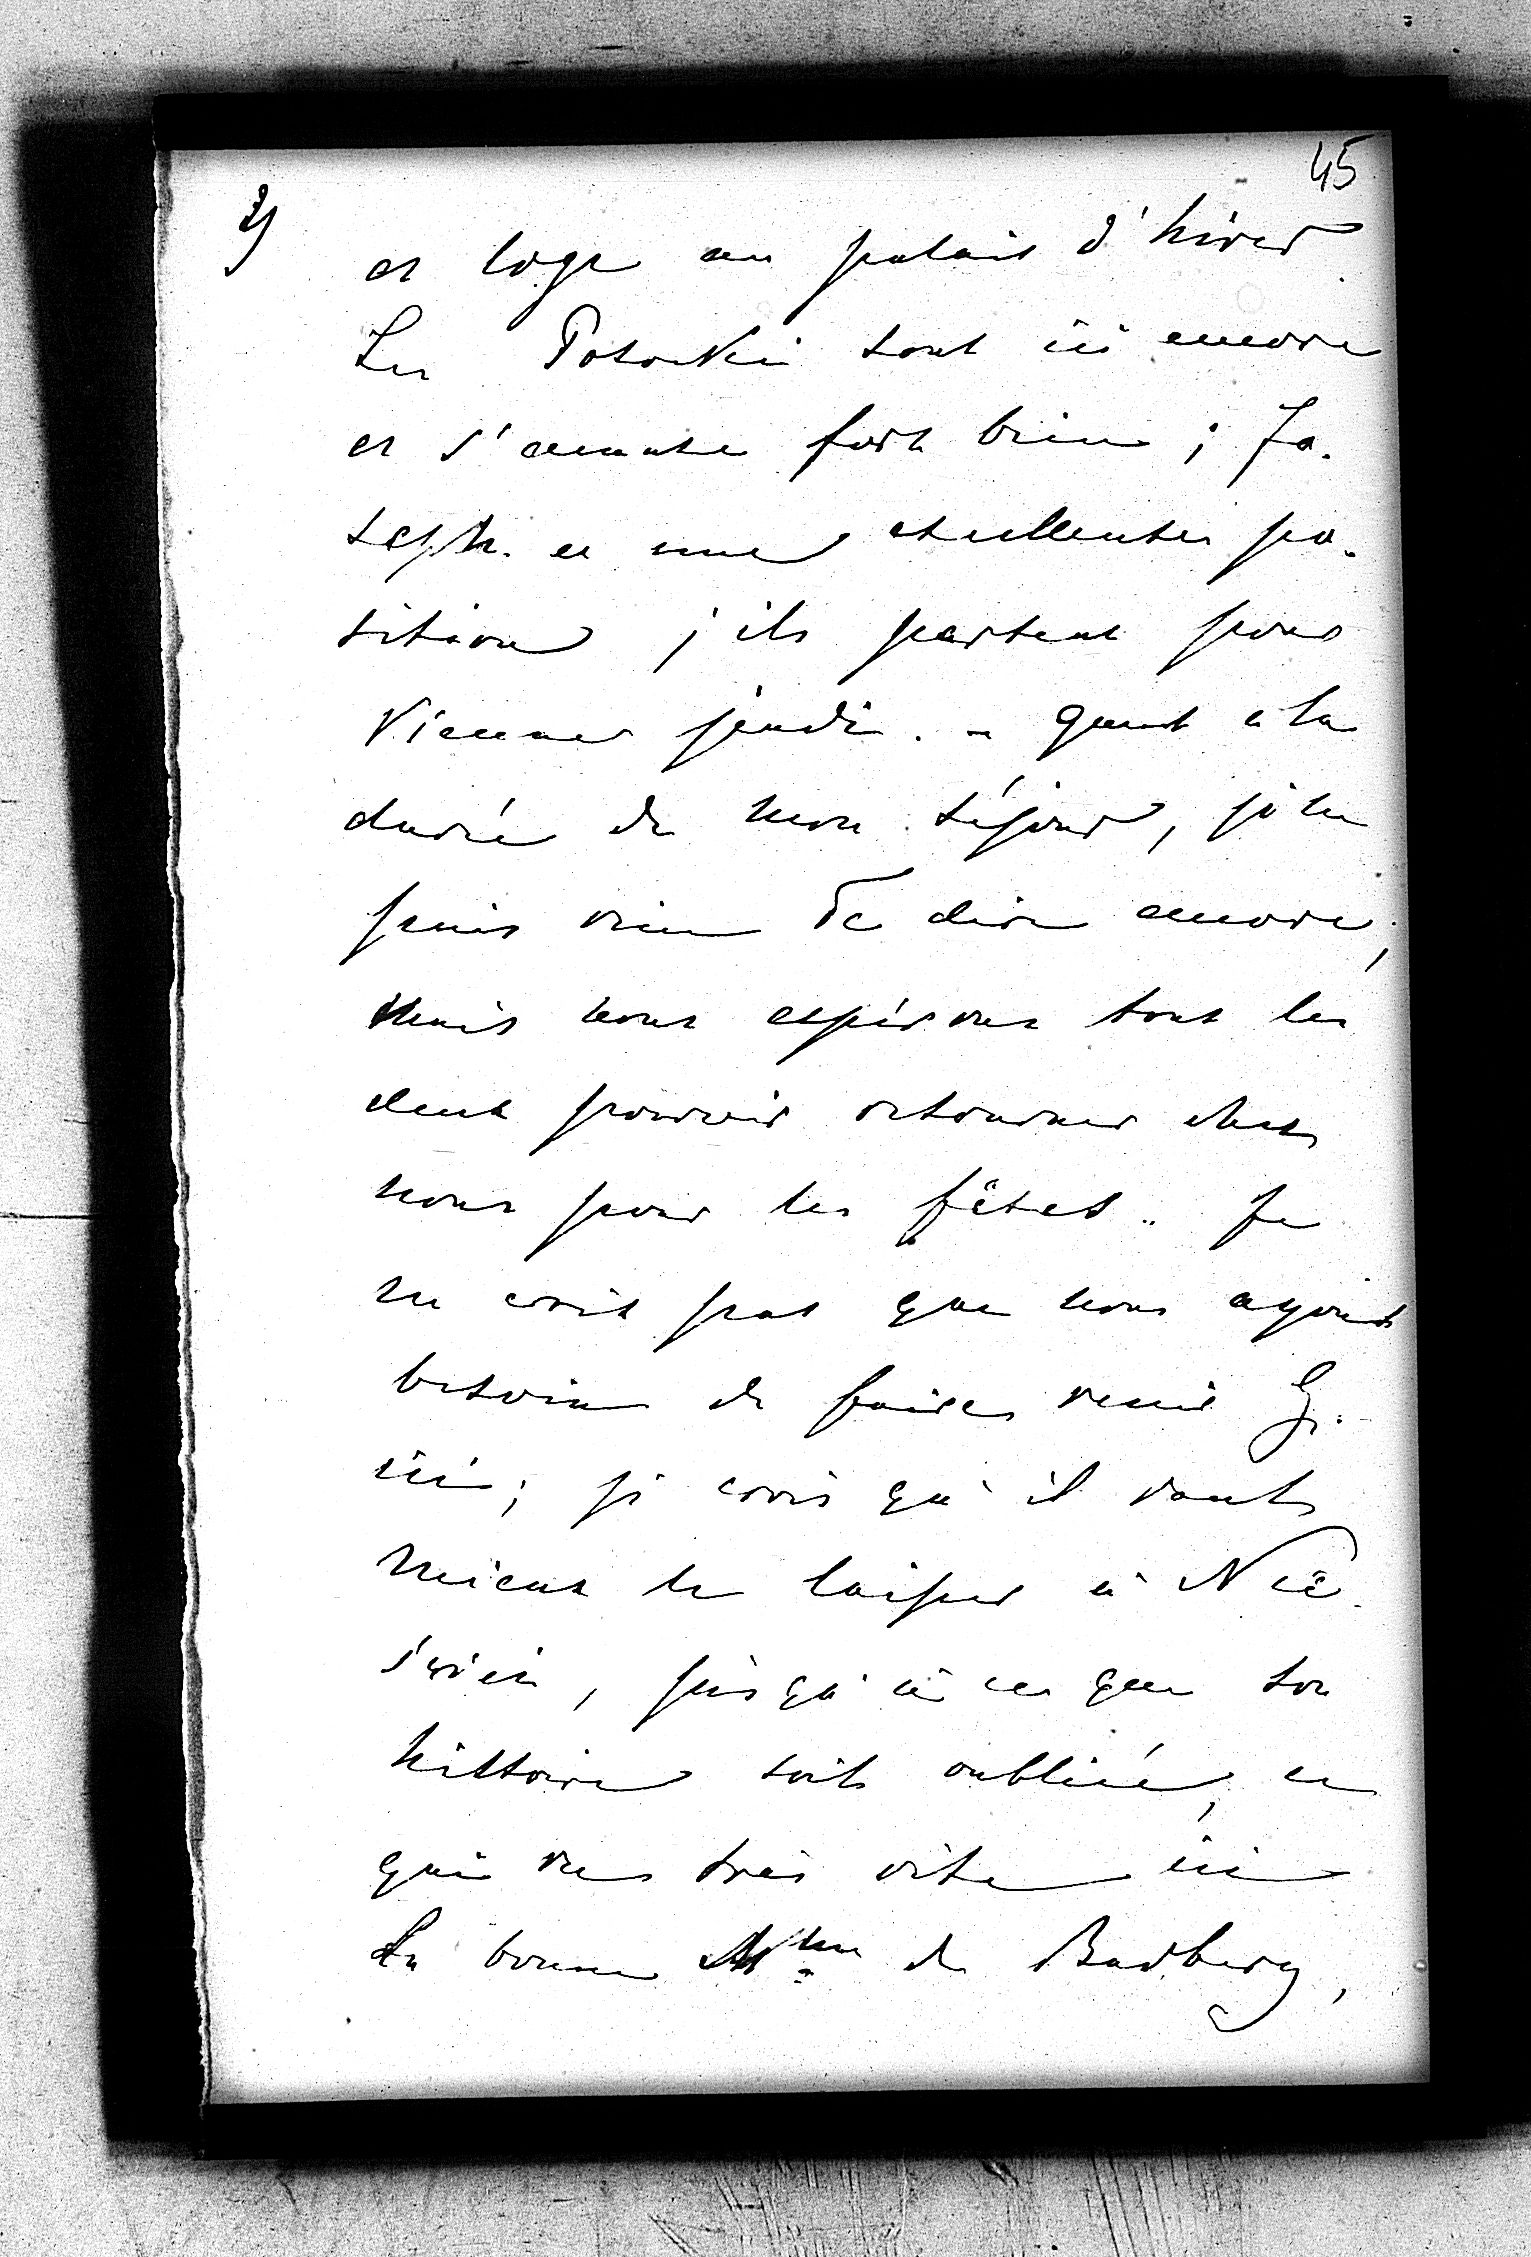 45
2)
et loge au palais d'hiver
Les Potocki sont ici encore
et s'amuse fort bien ; Jo-
seph. a une excellente po-
sition ; ils partent pour
Vienne jeudi. - quant à la
durée de mon séjour, je ne
puis rien Te dire encore,
mais nous espérons tous les
deux pouvoir retourner chez
nous pour les fêtes. Je
ne crois pas que nous ayons
besoin de faire venir G.
ici ; je crois qu'il vaut
mieux le laisser à Nie-
świeź, jusqu'à ce que son
histoire soit oubliée, ce
qui va très vite ici
La bonne Mme de Budberg,